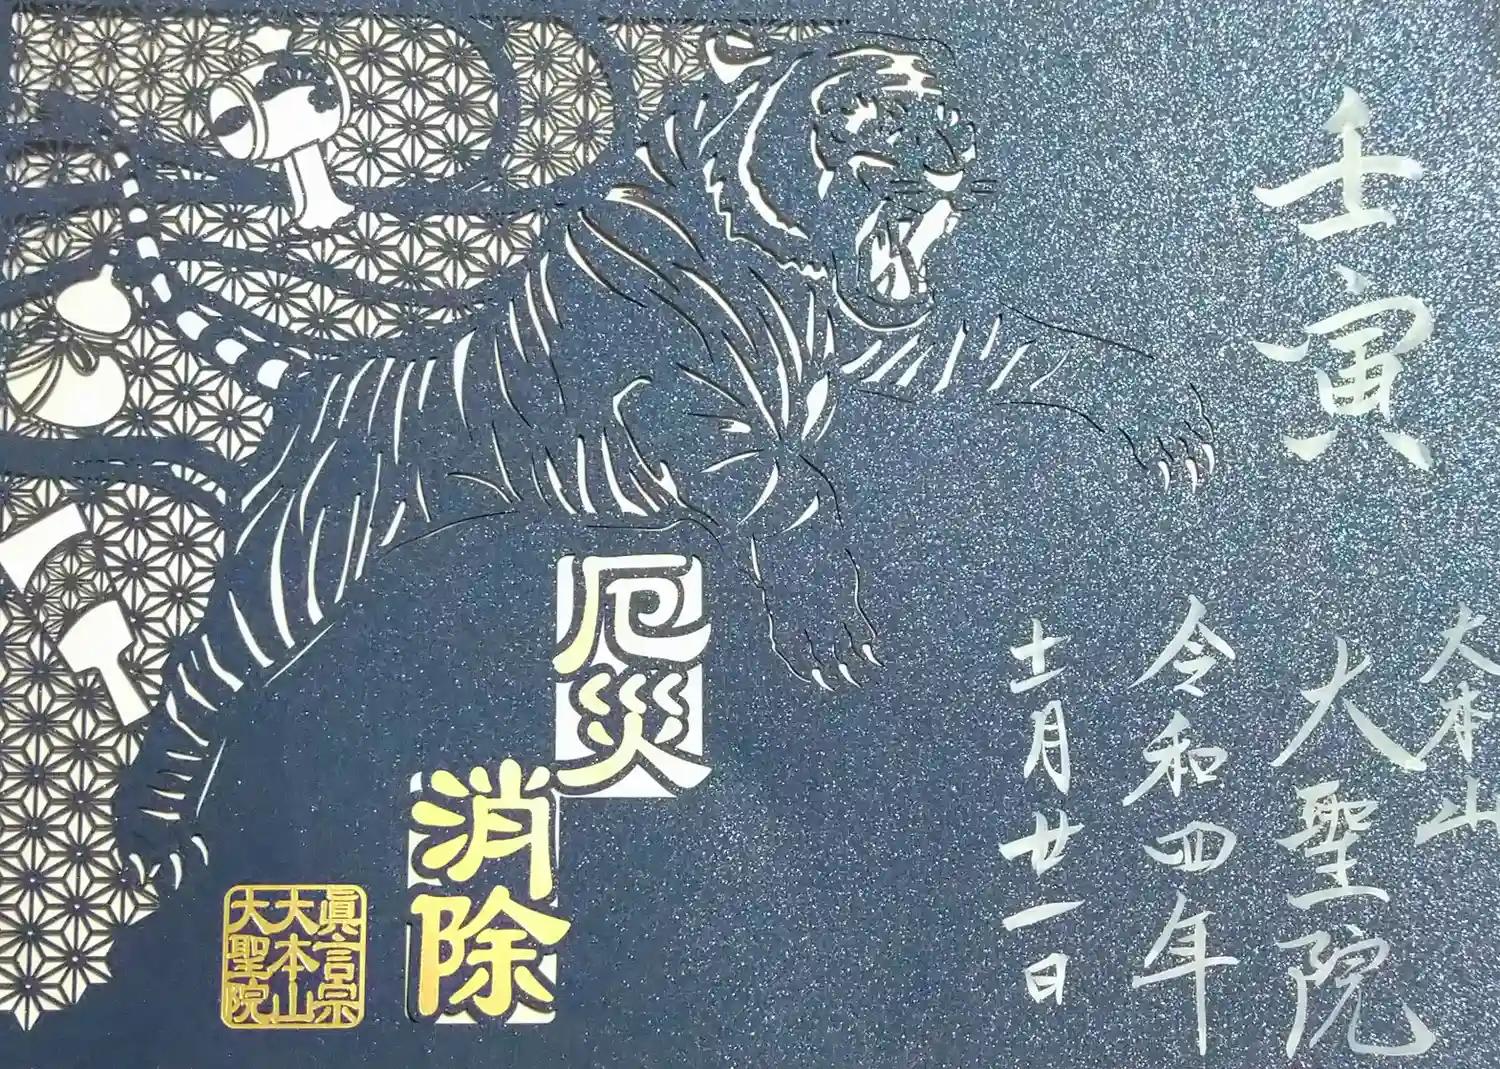 壬寅
大本山
大聖院
令和四年
十一月廿一日
厄災
消除
眞言宗
大本山
大聖院